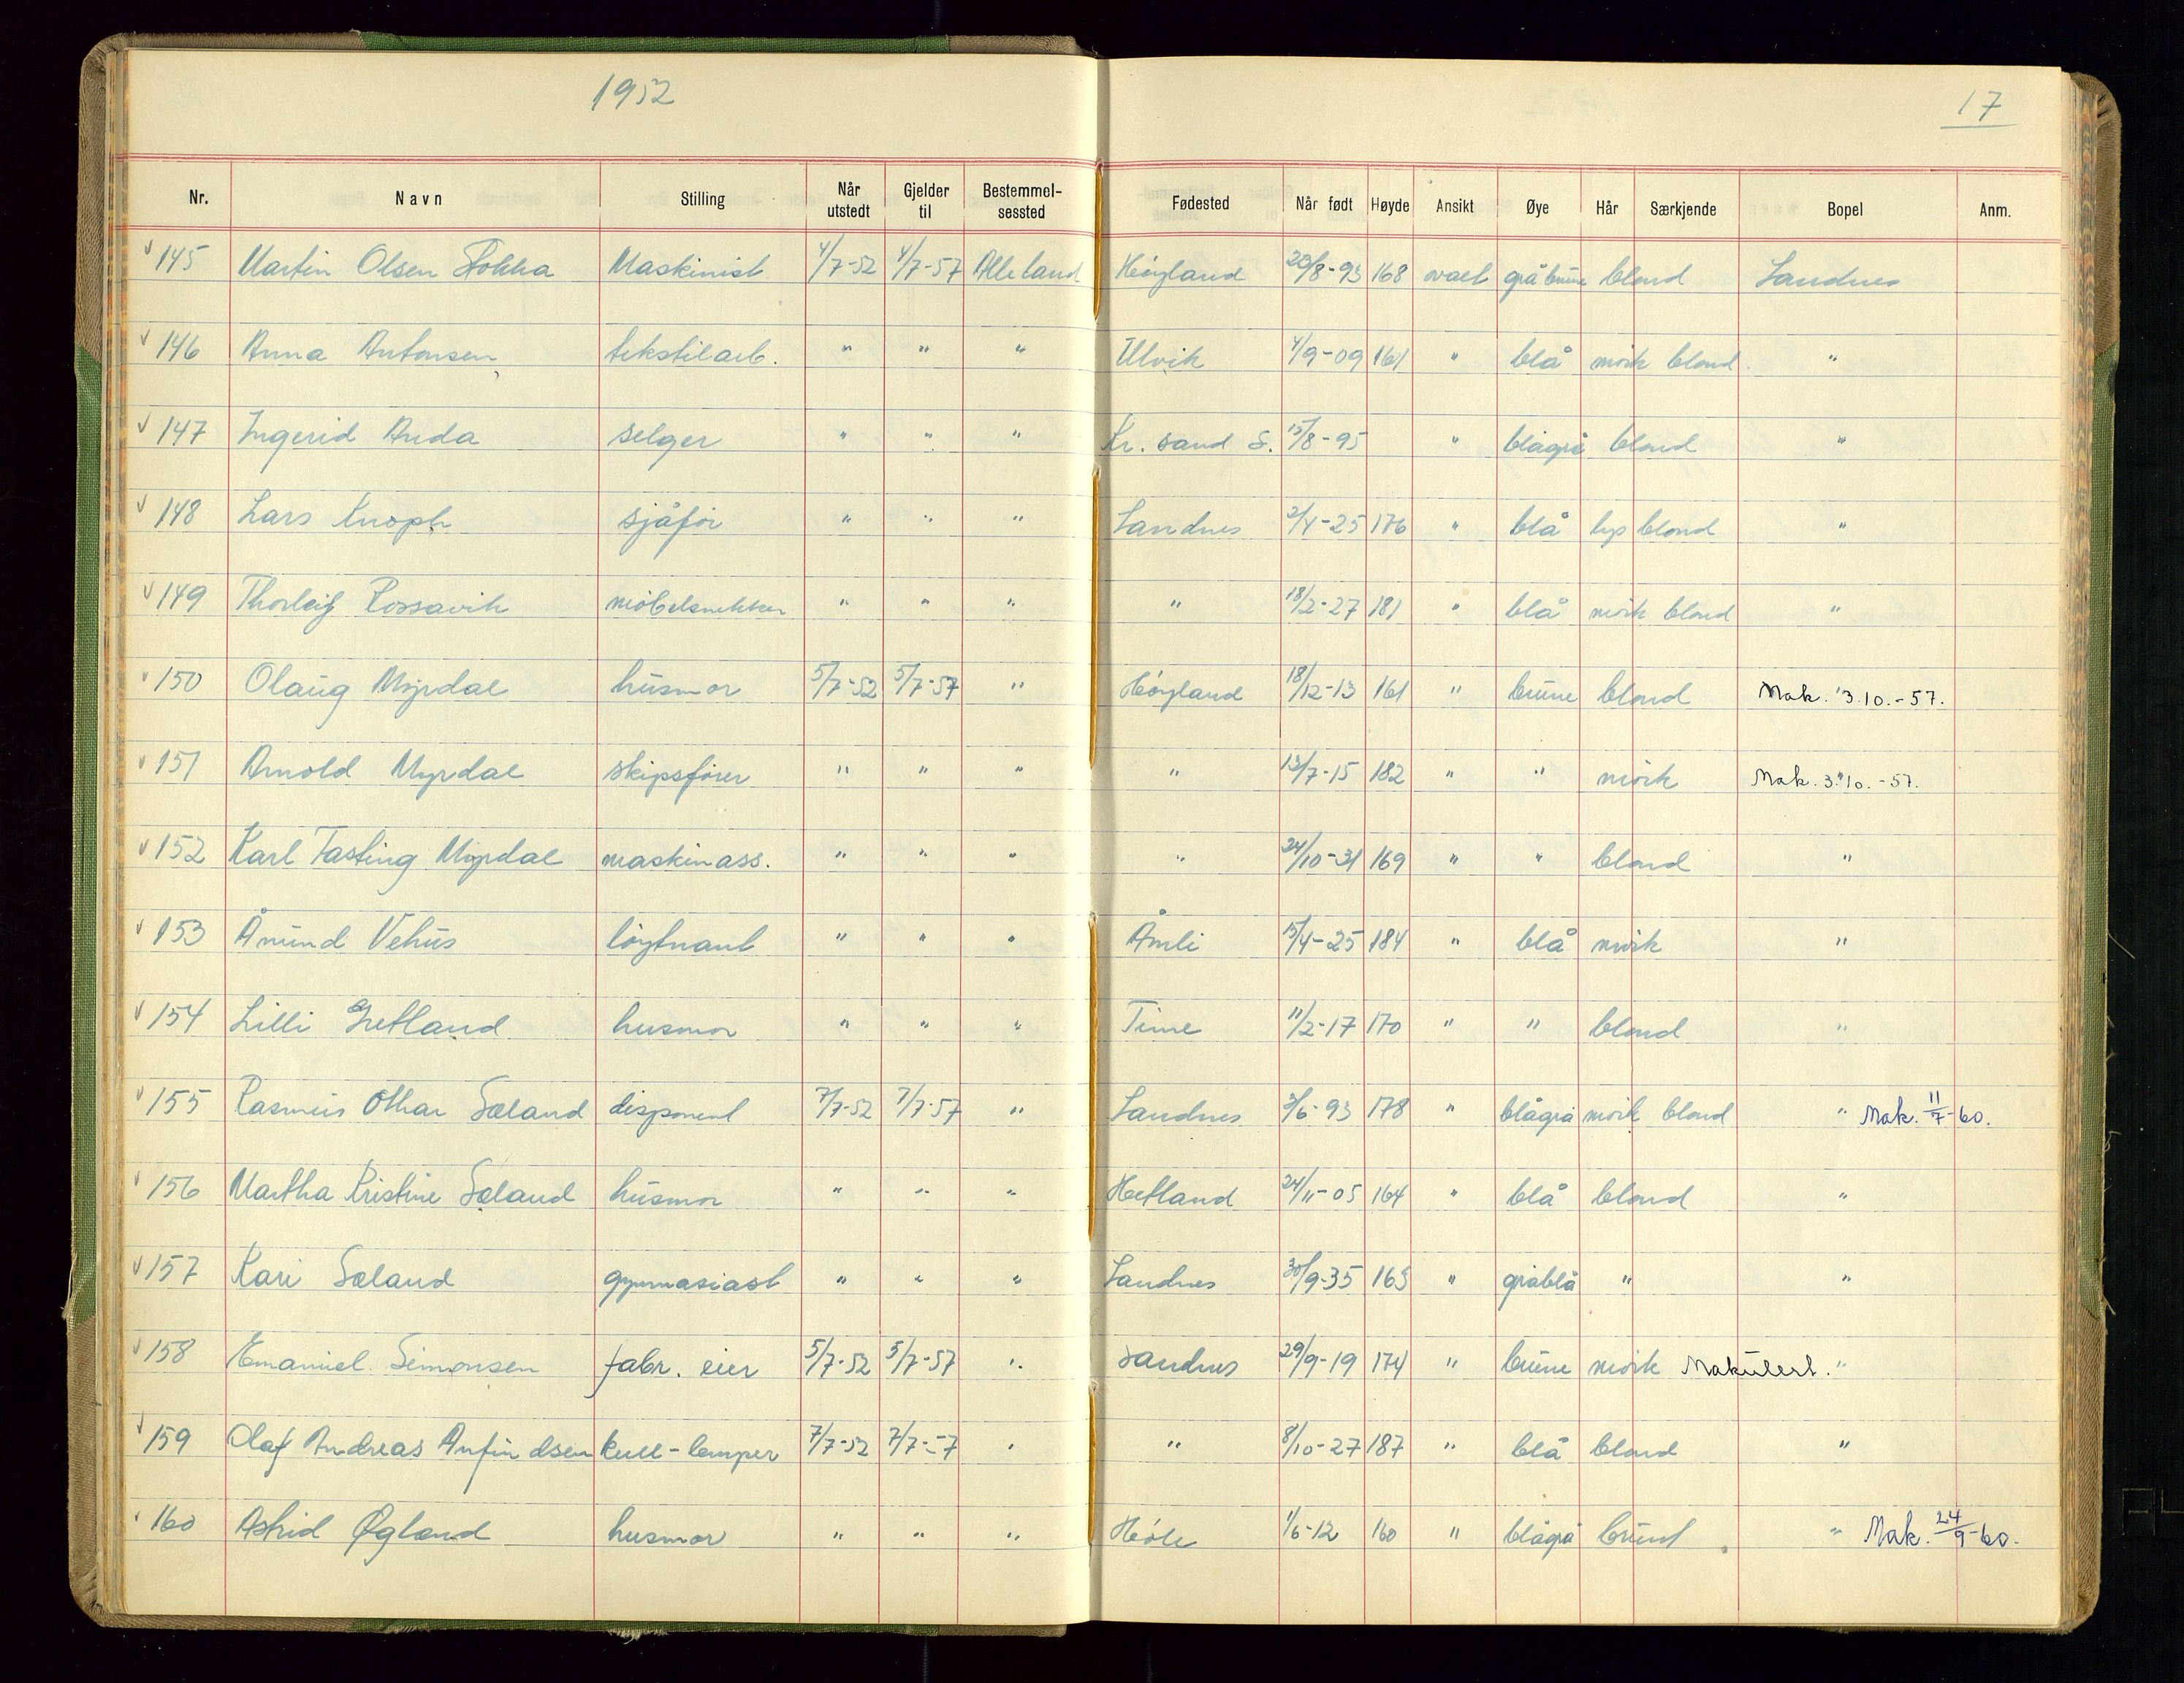 1952
17
Nr. Navn Stilling Når utstedt Gjelder til Bestemmelsessted Fødested Når født Høyde Ansikt Øye Hår Særkjende Bopel Anm.
145 Martin Olsen Stokka Maskinist 4/7-52 4/7-57 Alle land Høyland 20/8-93 168 ovalt gråbrune blond Sandnes
146 Anna Antonsen tekstilarb. " " " Ulvik 4/9-09 161 " blå mørk blond "
147 Ingerid Anda selger " " " Kr. sand S. 15/8-95 " blågrå blond "
148 Lars Knoph sjåfør " " " Sandnes 2/4-25 176 " blå lys blond "
149 Thorleif Rossavik møbelsnekker " " " " 18/2-27 181 " blå mørk blond "
150 Olaug Myrdal husmor 5/7-52 5/7-57 " Høyland 18/12-13 161 " brune blond Mak. 3.10.-57.
151 Arnold Myrdal skipsfører " " " " 13/7-15 182 " " mørk Mak. 3."10.-57.
152 Karl Tasting Myrdal maskinass. " " " " 24/10-31 169 " " blond "
153 Ånund Vehus løytnant " " " Åmli 15/4-25 184 " blå mørk "
154 Lilli Gretland husmor " " " Time 11/2-17 170 " " blond "
155 Rasmus Othar Sæland disponent 7/7-52 7/7-57 " Sandnes 3/6-93 178 " blågrå mørk blond " Mak. 11/7-60.
156 Martha Kristine Sæland husmor " " " Hetland 24/11-05 164 " blå blond "
157 Kari Sæland gymnasiast " " " Sandnes 30/9-35 163 " gråblå " "
158 Emanuel Simonsen fabr. eier 5/7-52 5/7-57 " Sandnes 29/9-19 174 " brune mørk Makulert. "
159 Olaf Andreas Anfindsen kull-lemper 7/7-52 7/7-57 " " 8/10-27 187 " blå blond "
160 Astrid Øgland husmor " " " Høle 1/6-12 160 " blågrå brunt " Mak. 24/9-60.